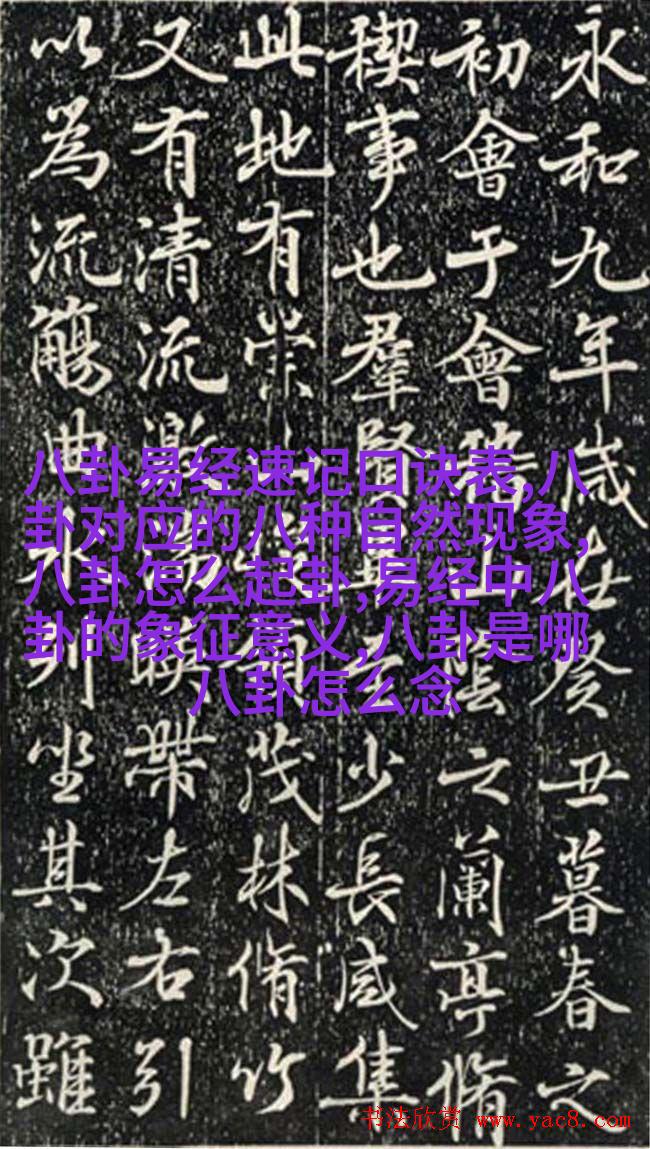 永和九年歲在癸丑暮春之
初會于會陰之蘭亭脩
稧事也羣賢畢至少長咸集
此地有崇茂林脩竹
又有清流激暎帶左右引
以為流觴曲水列坐其次雖
八卦易经速记口诀表,八
卦对应的八种自然现象,
八卦怎么起卦,易经中八
卦的象征意义,八卦是哪
八卦怎么念
书法欣赏 www.yac8.com